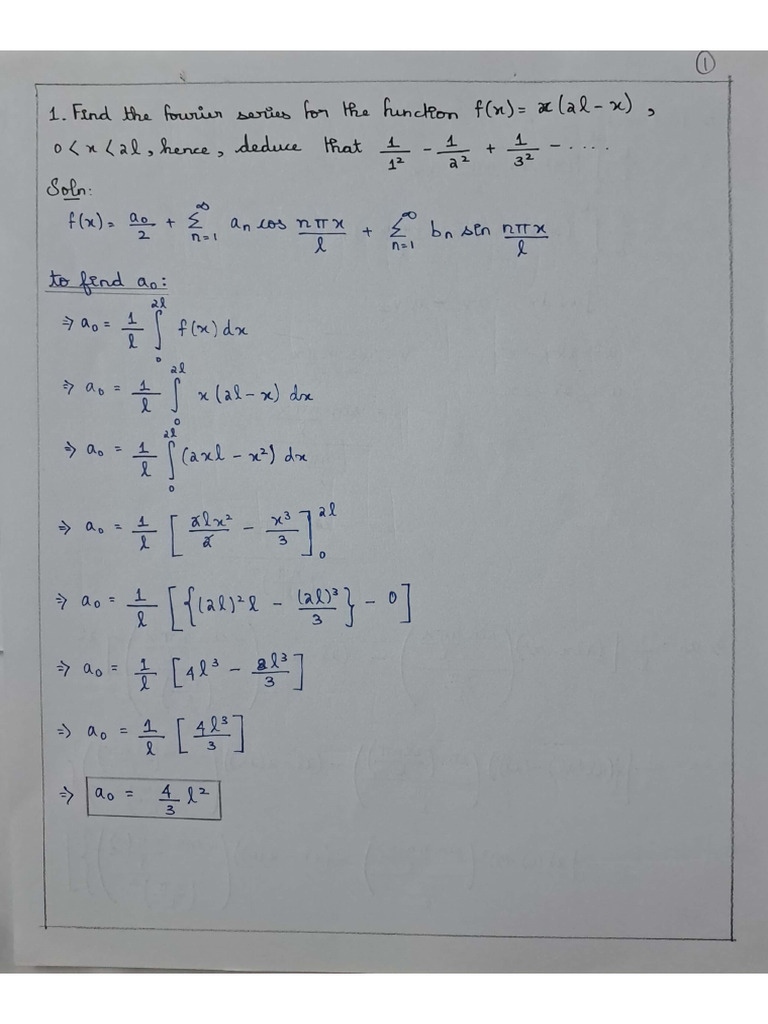 ①
1. Find the fourier series for the function f(x) = x(2l - x) ,
0 < x < 2l, hence, deduce that 1/1² - 1/2² + 1/3² - ....
Soln:
f(x) = a₀/2 + Σ_{n=1}^{∞} aₙ cos nπx/l + Σ_{n=1}^{∞} bₙ sin nπx/l
to find a₀:
⇒ a₀ = 1/l ∫₀^{2l} f(x) dx
⇒ a₀ = 1/l ∫₀^{2l} x(2l - x) dx
⇒ a₀ = 1/l ∫₀^{2l} (2xl - x²) dx
⇒ a₀ = 1/l [ 2lx²/2 - x³/3 ]₀^{2l}
⇒ a₀ = 1/l [ { (2l)²l - (2l)³/3 } - 0 ]
⇒ a₀ = 1/l [ 4l³ - 8l³/3 ]
⇒ a₀ = 1/l [ 4l³/3 ]
⇒ a₀ = 4/3 l²